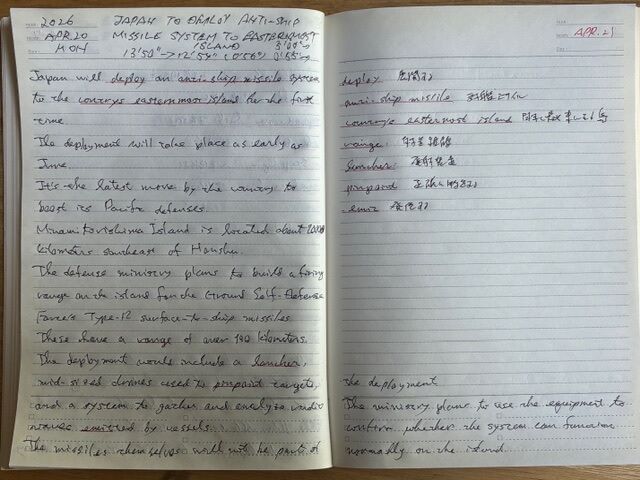 2026
APR.20
MON
JAPAN TO DEPLOY ANTI-SHIP
MISSILE SYSTEM TO EASTERNMOST
ISLAND
13'50" -> 12'54"
Japan will deploy an anti-ship missile system
to the countrys easternmost island for the first
time
The deployment will take place as early as
June.
It's the latest move by the country to
boost its Pacific defenses.
Minamitorishima Island is located about
kilometers southeast of Honshu.
The defense ministry plans to build a firing
range on the island for the Ground Self-Defense
Force's Type-12 surface-to-ship missiles
These have a range of over 100 kilometers.
The deployment would include a launcher,
mid-sized drones used to pinpoint targets,
and a system to gather and analyze radio
waves emitted by vessels.
The missiles themselves will not be part of
APR.21
deploy
anti-ship missile
countrys easternmost island
range
launcher
pinpoint
emit
the deployment
The ministry plans to use the equipment to
confirm whether the system can function
normally on the island.